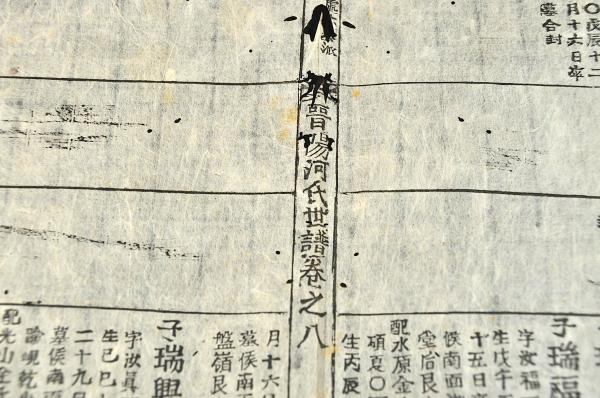 〇戊辰十二
月十六日卒
墓合封
子瑞福
字汝福
生戊午
十五日卒
候南面
堂后艮
配水原金
碩夏〇
生丙辰
派
晋陽河氏世譜卷之八
月十六
墓候南
盤嶺艮
子瑞興
字汝眞
生己巳
二十九日
墓候南面
論峴乾
配光山金氏